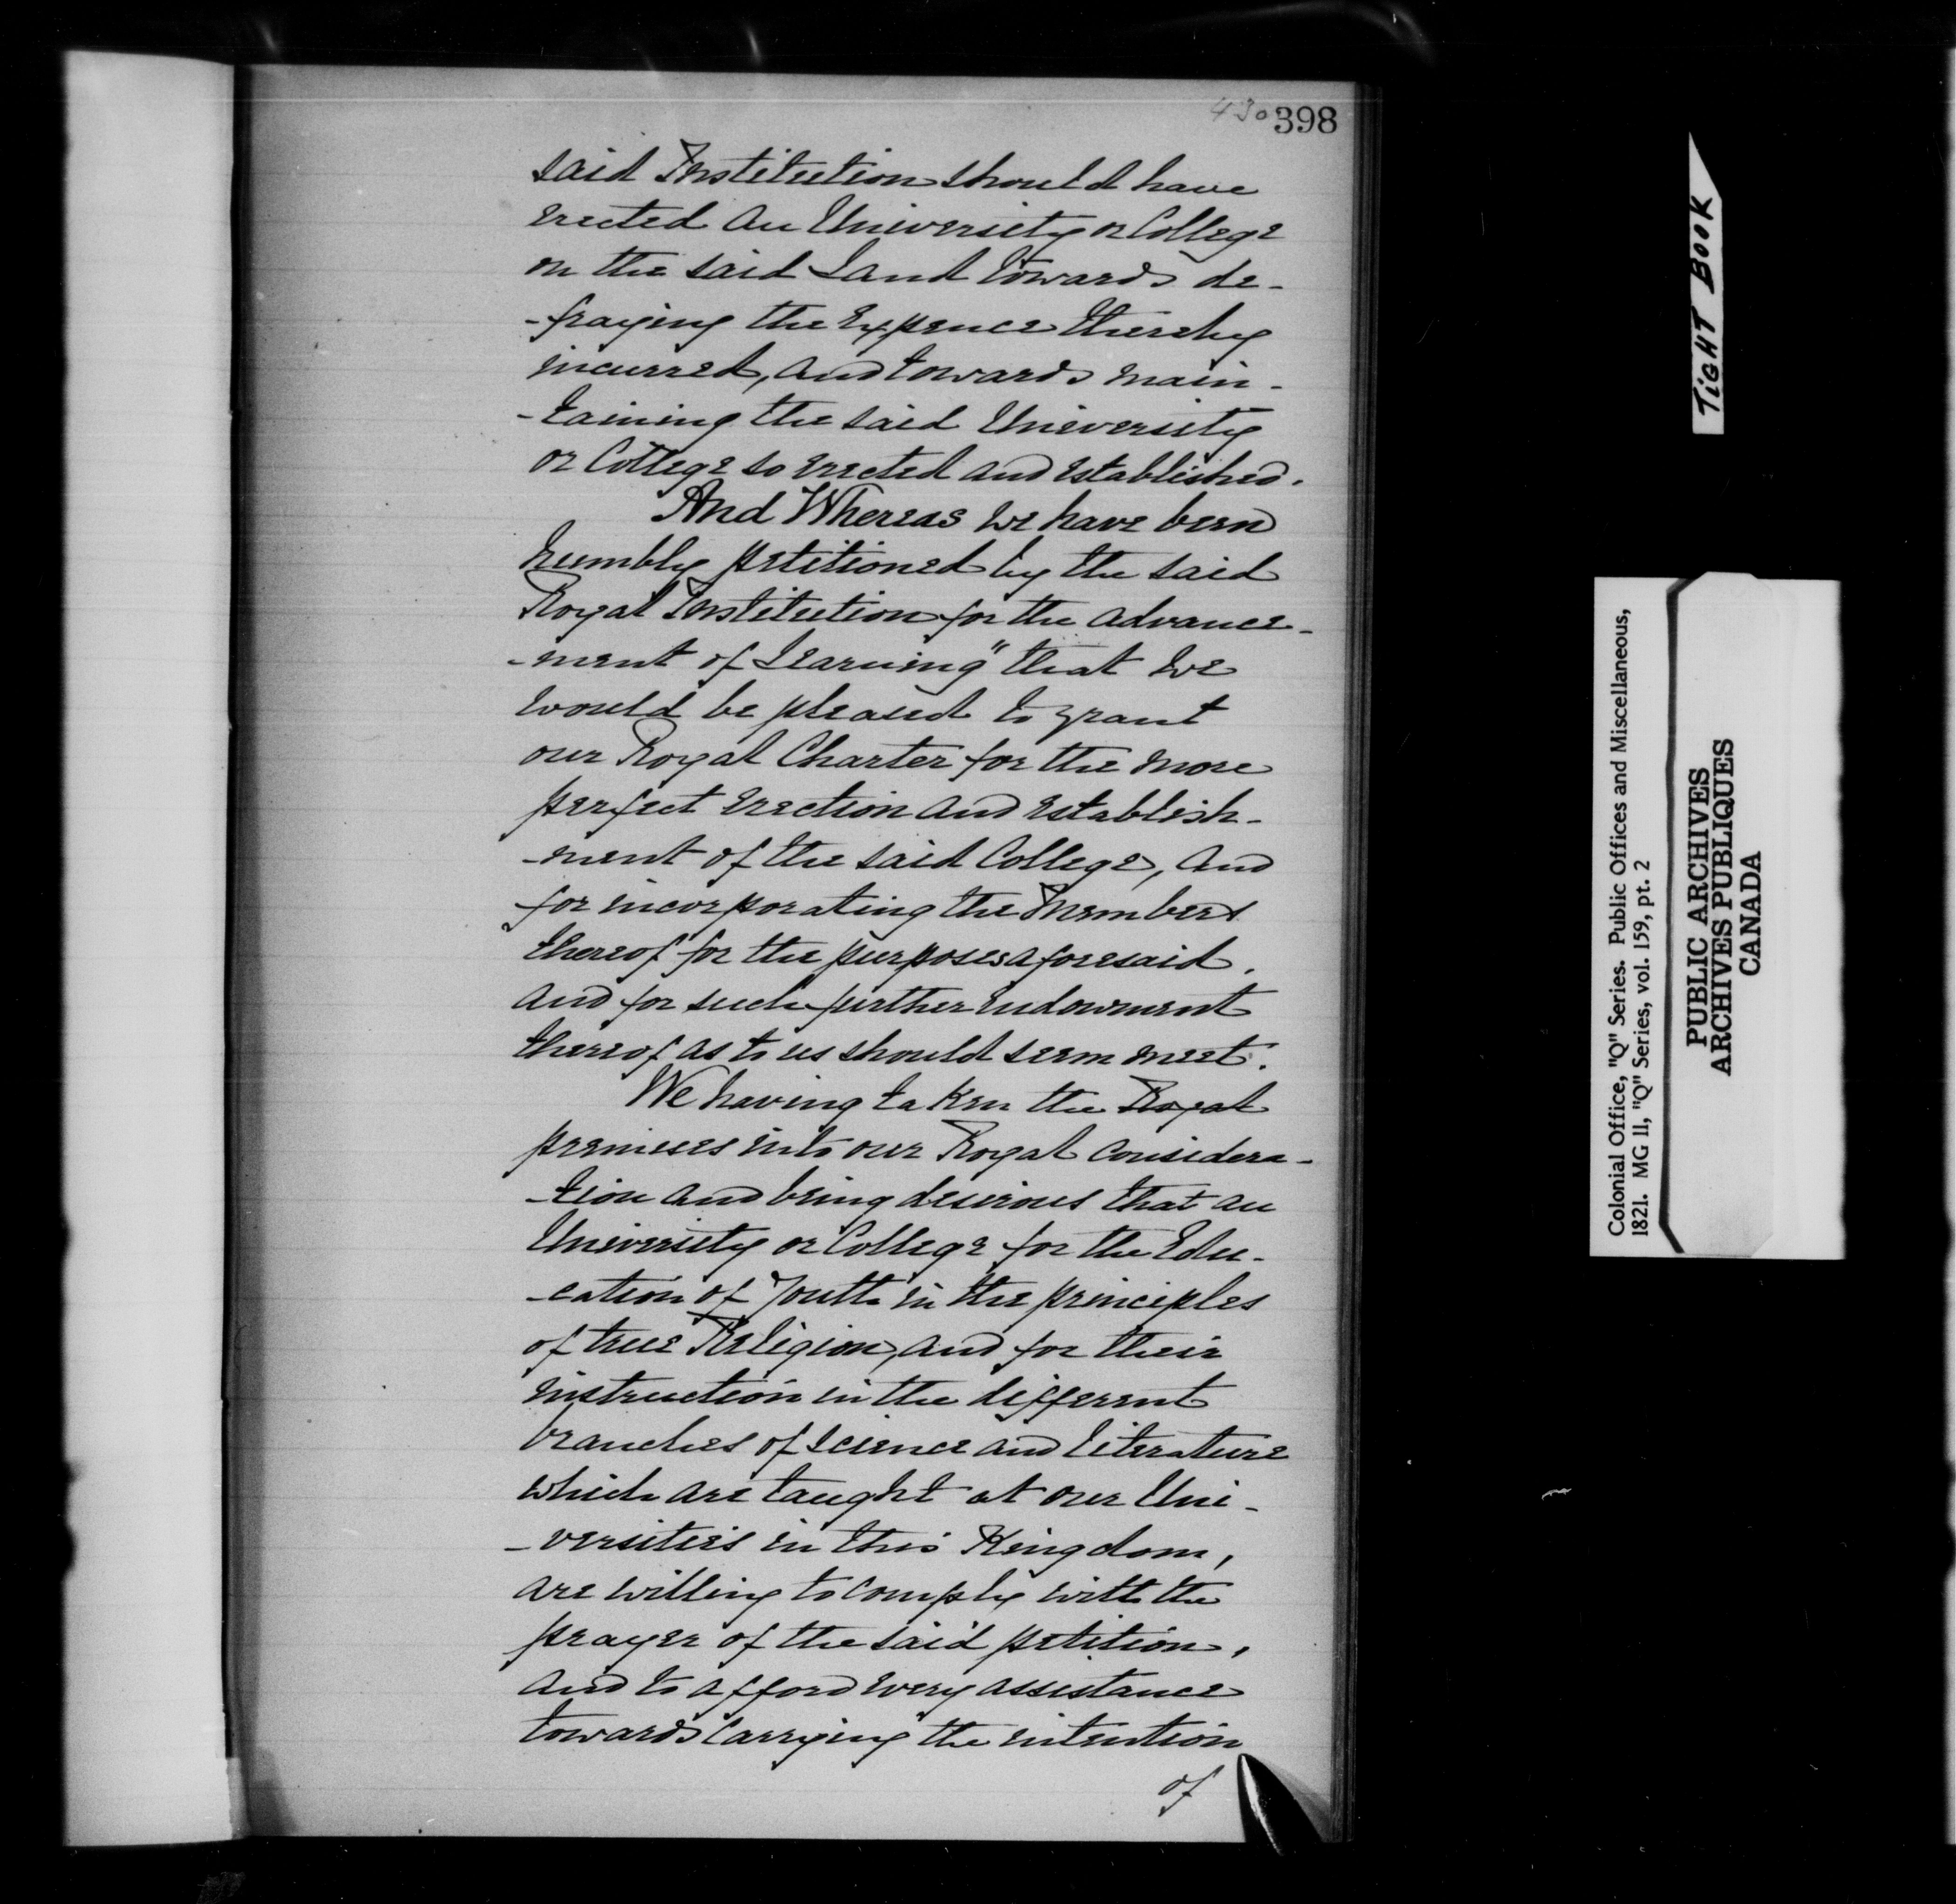 430
398
said Institution should have
erected an University or College
on the said Land towards de-
-fraying the Expence thereby
incurred, and towards main-
-taining the said University
or College so erected and established.
And Whereas we have been
humbly petitioned by the said
Royal Institution for the advance-
-ment of Learning" that we
would be pleased to grant
our Royal Charter for the more
perfect erection and establish-
-ment of the said College, and
for incorporating the Members
thereof for the purposes aforesaid.
and for such further endowment
thereof as to us should seem meet.
We having taken the Royal
premises into our Royal considera-
-tion and being desirous that an
University or College for the Edu-
-cation of Youth in the principles
of true Religion, and for their
instruction in the different
branches of science and literature
which are taught at our Uni-
-versities in this Kingdom,
are willing to comply with the
prayer of the said petition,
and to afford every assistance
towards carrying the intention
of
TIGHT BOOK
Colonial Office, "Q" Series. Public Offices and Miscellaneous,
1821. MG 11, "Q" Series, vol. 159, pt. 2
PUBLIC ARCHIVES
ARCHIVES PUBLIQUES
CANADA